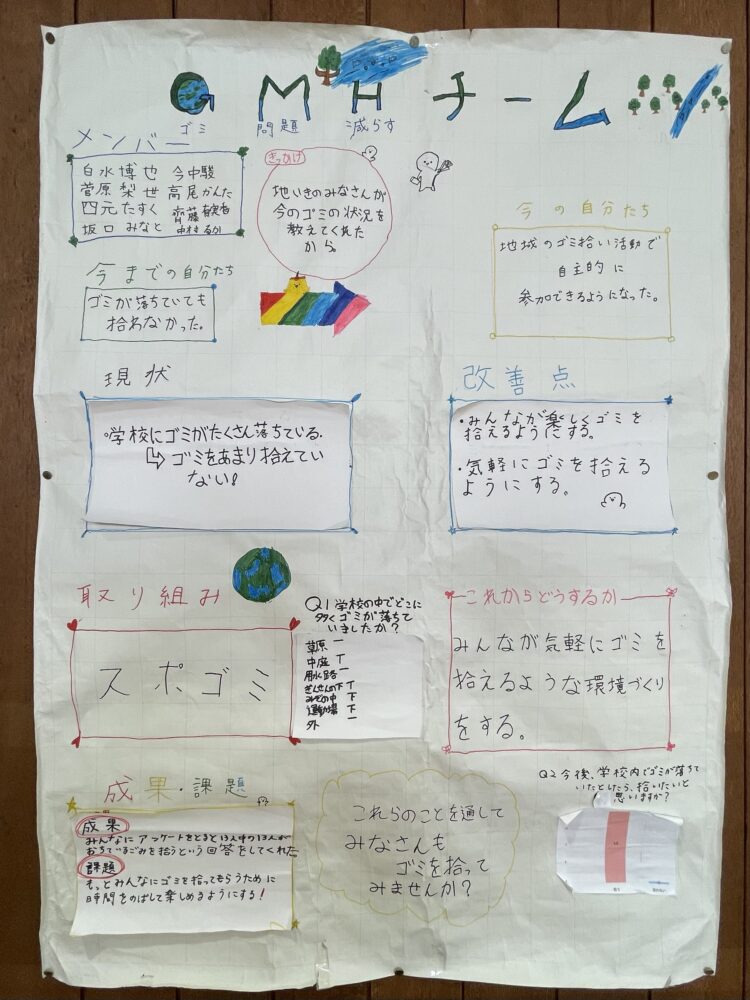 GMHチーム
ゴミ 問題 減らす
メンバー
白水博也 今中駿
菅原梨世 高尾かんた
四元たすく 齊藤
坂口みなと 中村るか
きっかけ
地いきのみなさんが
今のゴミの状況を
教えてくれた
から。
今の自分たち
地域のゴミ拾い活動で
自主的に
参加できるようになった。
今までの自分たち
ゴミが落ちていても
拾わなかった。
現状
・学校にゴミがたくさん落ちている.
↳ゴミをあまり拾えてい
ない!
改善点
・みんなが楽しくゴミを
拾えるようにする。
・気軽にゴミを拾える
ようにする。
取り組み
スポゴミ
Q1 学校の中でどこに
多くゴミが落ちて
いましたか?
草原 一
中庭 T
用水路 一
ぎんなんの下 T
みぞの中 下
運動場 下
外 一
これからどうするか
みんなが気軽にゴミを
拾えるような環境づくり
をする。
成果・課題
成果
みんなにアンケートをとると13人中の13人が
おちているごみを拾うという回答をしてくれた
課題
もっとみんなにゴミを拾ってもらうために
時間をのばして楽しめるようにする!
これらのことを通して
みなさんも
ゴミを拾って
みませんか?
Q2 今後、学校内でゴミが落ちて
いたとしたら、拾いたいと
思いますか?